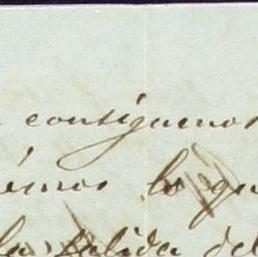 consiguenos
emos lo qu
la salida del